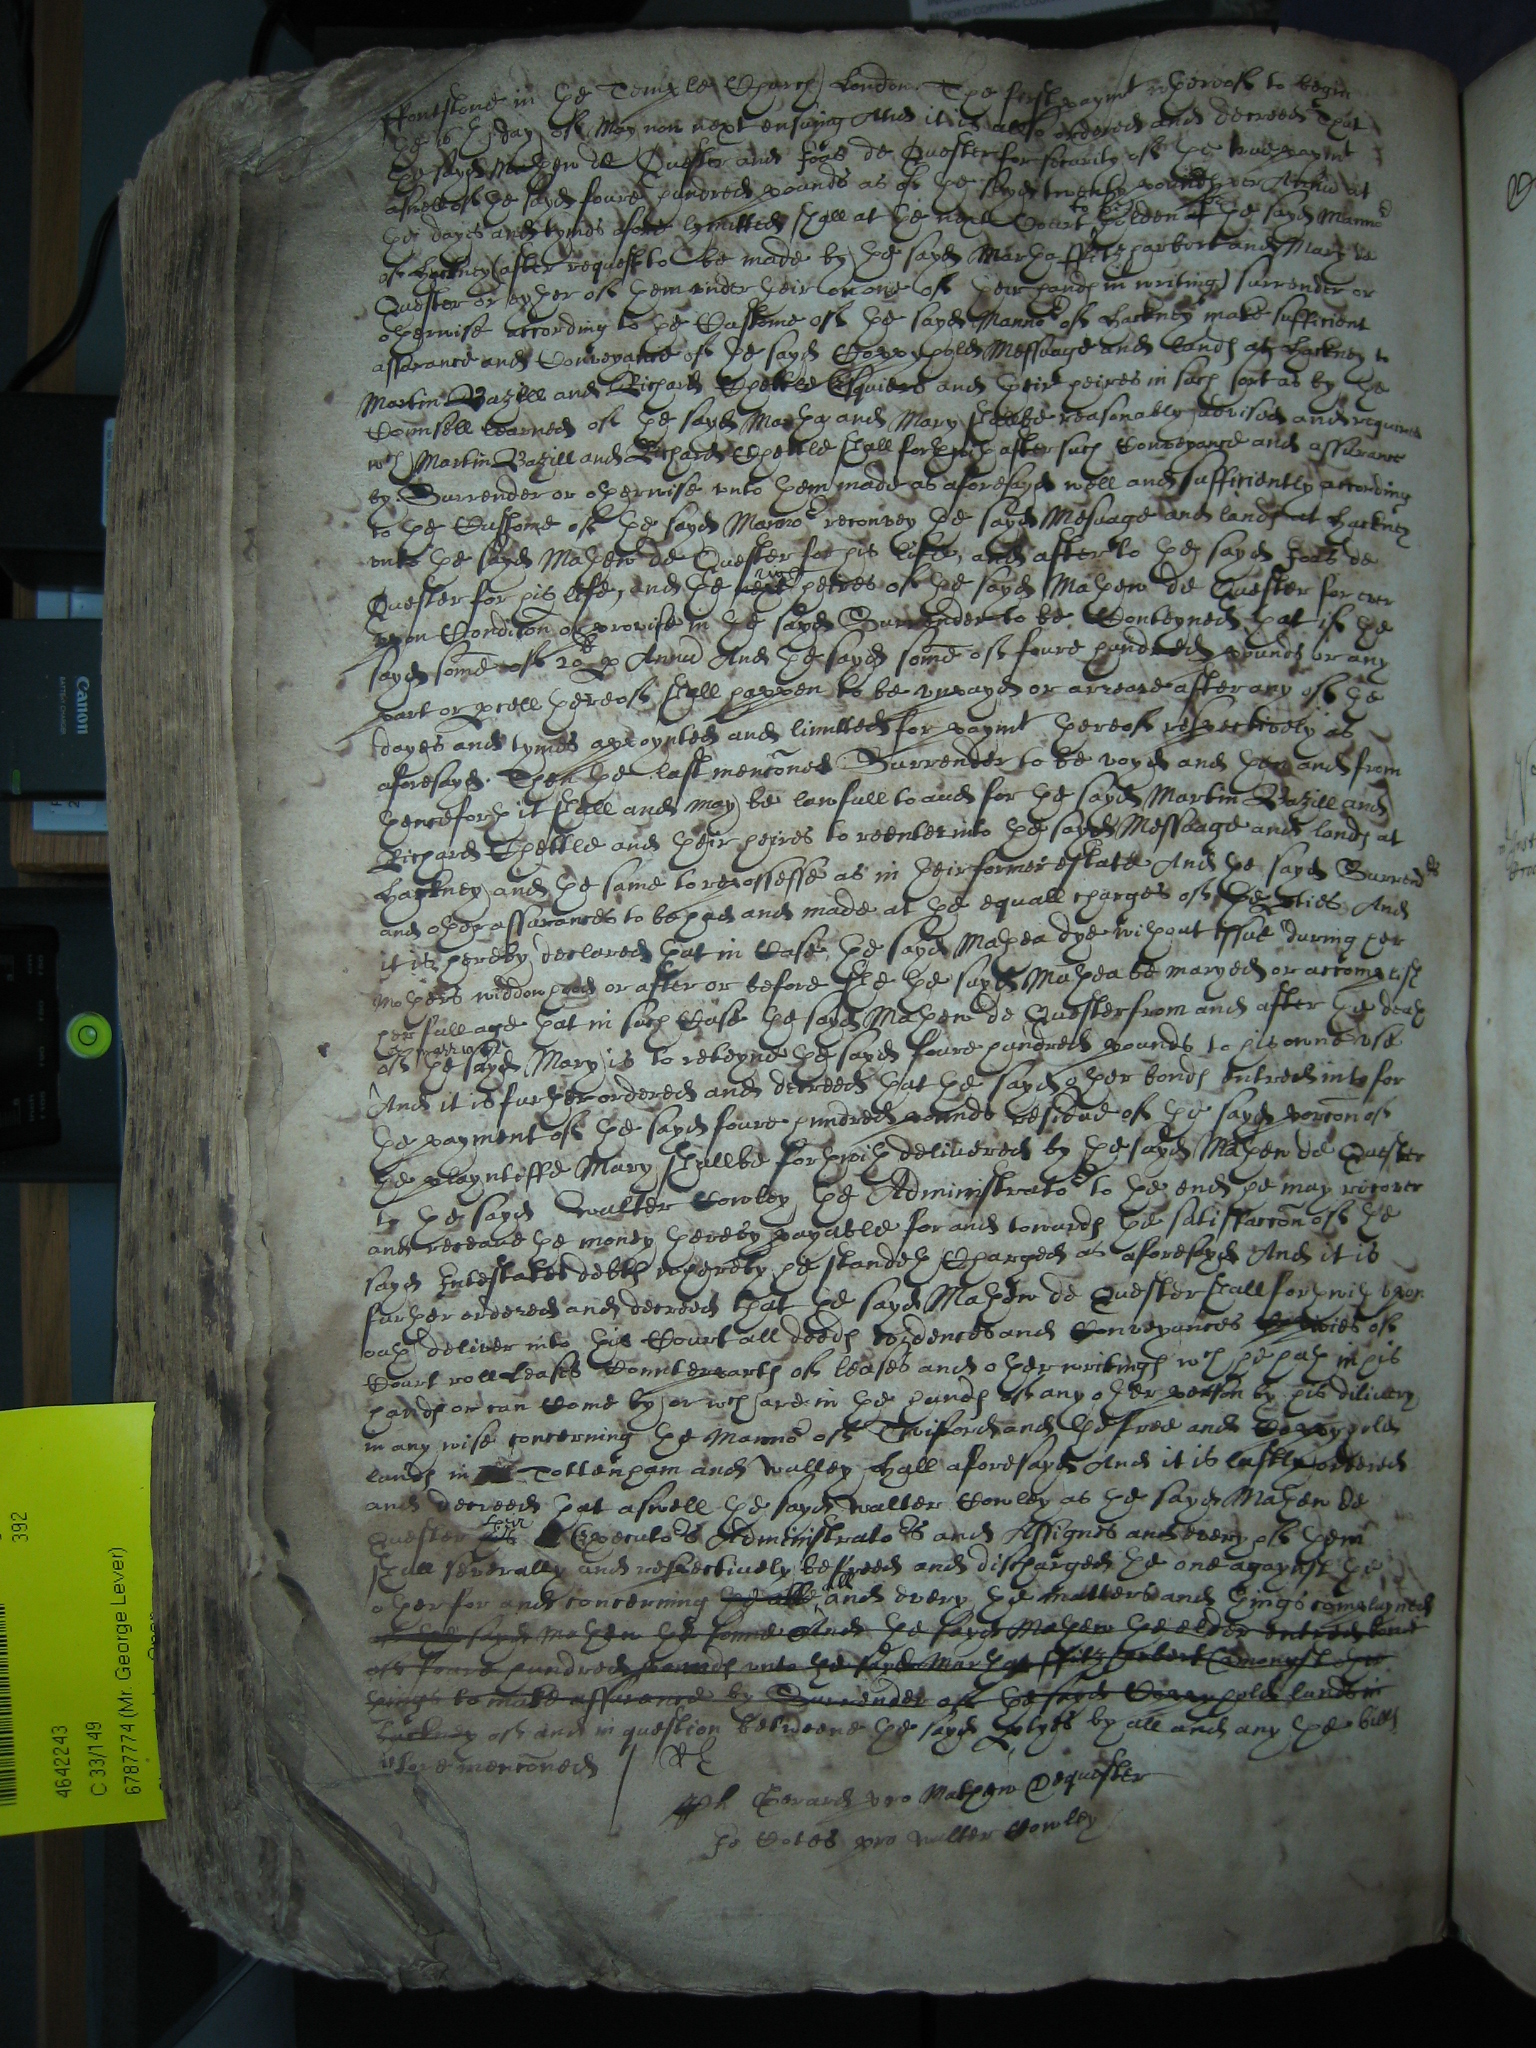 ffontstone in the Temple Church London The first paymt whereof to begin
the 16th day of May now next ensuing And it is also ordered and decreed that
the sayd Mathew de Quester and Joas de Quester for security of the true paymt
aswell of the sayd foure hundred pounds as of the sayd twenty pounds per Annu at
the dayes and tymes afore lymitted shall at the next Court to be holden at the sayd Manno
of Hackney (after request to be made by the sayd Martha ffitzharbert and Mary de
Quester or eyther of them under their or one of their hands in writing) surrender or
otherwise according to the Custome of the sayd Manno of Hackney make sufficient
assurance and Conveyance of the sayd Coppyhold Messuage and lands at Hackney to
Martin Bazill and Richard Chettle Esquiers and their heires in such sort as by the
Counsell learned of the sayd Martha and Mary shalbe reasonably advised and required
wch Martin Bazill and Richard Chettle shall forthwith after such Conveyance and assurance
by Surrender or otherwise unto them made as aforesayd well and sufficiently according
to the Custome of the sayd Manno reconvey the sayd Mesuage and lands at Hackney
unto the sayd Mathew de Quester for his life, and after to the sayd Joas de
Quester for his life, and the right heires of the sayd Mathew de Quester for ever
upon Condicon or proviso in the sayd Surrender to be Conteyned that if the
sayd some of 20 p Annu And the sayd some of foure hundred pounds or any
part or pcell thereof shall happen to be unpayd or arreare after any of the
dayes and tymes appoynted and limitted for paymt thereof respectively as
aforesayd. Then the last menconed Surrender to be voyd and then and from
thenceforth it shall and may be lawfull to and for the sayd Martin Bazill and
Richard Chettle and their heires to reenter into the sayd Messuage and lands at
Hackney and the same to repossesse as in their former estate And the sayd Surrenders
and other assurances to be had and made at the equall charges of the pties And
it is hereby declared that in Case the sayd Mathea dye without issue during her
Mothers widdowhood or after or before she the sayd Mathea be maryed or accomplish
her full age that in such Case the sayd Mathew de Quester from and after the death
or marriage
of the sayd Mary is to reteyne the sayd foure hundred pounds to his owne use
And it is further ordered and decreed that the sayd other bonds entred into for
the payment of the sayd foure hundred pounds residue of the sayd porcon of
the playntiffe Mary shalbe forthwith delivered by the sayd Mathew de Quester
to the sayd Walter Cowley the Administrator to the end he may recover
and receave the money thereby payable for and towards the satisfaccon of the
sayd Intestates debts whereby he standeth Charged as aforesayd And it is
further ordered and decreed that the sayd Mathew de Quester shall forthwith upon
oath deliver into this Court all deeds evidences and Conveyances Copies of
Court roll Leases Counterparts of leases and other writings wch he hath in his
hands or can Come by or wch are in the hands of any other person by his delivery
in any wise concerning the Manno of Twiford and the free and Coppyhold
lands in Tottenham and Walley Hall aforesayd And it is lastly ordered
and decreed that aswell the sayd Walter Cowley as the sayd Mathew de
Quester their Executors Administrators and Assignes and every of them
shall severally and respectively be freed and discharged the one agaynst the
other for and concerning all and every the matters and things complayned
of the sayd Mathew the sonne And the sayd Mathew the elder entred bond
of foure hundred pounds unto the sayd Martha ffitzharbert (amongst other
things to make assurance by Surrender of the sayd Coppyhold lands in
Hackney of and in question betweene the sayd ptyes by all and any the bills
before menconed
Gerard pro Mathew Dequester
Jo Cotes pro Walter Cowley
Canon
BATTERY CHARGER
392
4642243
C 33/149
6787774 (Mr. George Lever)